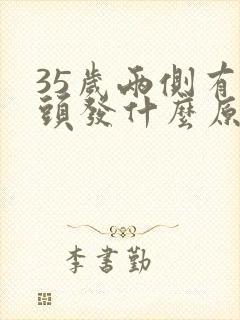 35歲兩側有
頭發什麼原
李書勤